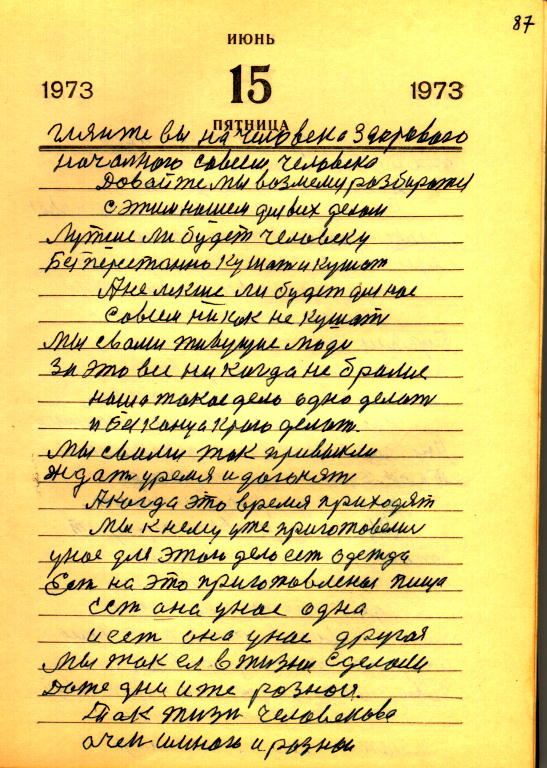 87
ИЮНЬ
1973 15 1973
ПЯТНИЦА
глянте вы на человека здороваго
началного совсем человека
Довайте мы возмем у розбирател
с этим нашем для вих делом
Лутше ли будет человеку
Безперестанно кушат и кушат
А не лекше ли будет для нас
совсем никак не кушат
Мы свами живущие люди
За это все никогда не бралис
наша такое дело одно делат
и Без конца краю делат.
Мы свами так привыкли
ждат время и догонят
А когда это время приходят
Мы к нему уже приготовели
унас для этого дело ест одежда
Ест на это приготовленая пища
ест она унас одна
и ест она унас другая
Мы так ел в жизни сделали
Даже дни и же розной.
Так жизн человекова
очен много и розной